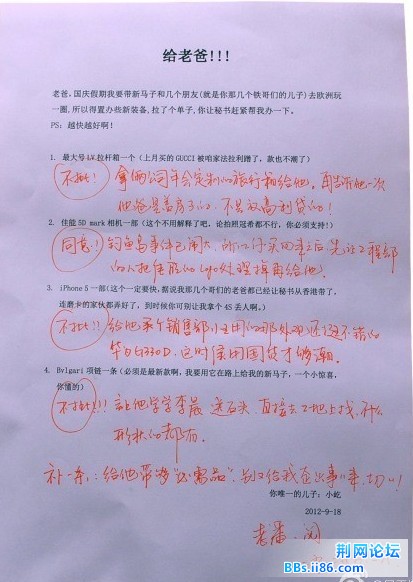 给老爸!!!
老爸，国庆假期我要带新马子和几个朋友(就是你那几个铁哥们的儿子)去欧洲玩
一圈,所以得置办些新装备,拉了个单子,你让秘书赶紧帮我办一下。
PS：越快越好啊！
1. 最大号LV拉杆箱一个（上月买的GUCCI被咱家法拉利蹭了，款也不潮了）
不批! 拿俩公司年会定制的旅行箱给他。再告诉他一次
他爸是盖房子的，不是放高利贷的!
2. 佳能5D mark相机一部（这个不用解释了吧，论拉照冠希都不行，你必须支持!）
同意! 钓鱼岛事件已闹大，所以你买回来之后先让工程部
的把佳能的logo处理掉再给他.
3. iPhone 5一部(这个一定要快,据说我那几个哥们的老爸都已经让秘书从香港带了,
连磨卡的家伙都弄好了，到时候你可别让我拿个4S丢人啊。)
不批!! 给他来个销售部用的那外观还不错的
毕竟这时候用国货才够潮.
4. Bvlgari项链一条（必须是最新款啊，我要用它在路上给我的新马子，一个小惊喜，
你懂的）
不批!!! 让他学学李晨送石头，直接去工地上找，什么
形状的都有.
补一条：给他带够"必需品"，别又给我整出事来，切切!
你唯一的儿子：小屹
2012-9-18
老潘.阅
荆网论坛
BBs.ii86.com